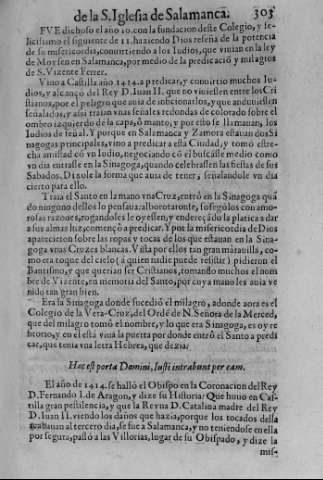 de la S. Iglesia de Salamanca. 303
FVE dichoso el año 10. con la fundacion deste Colegio, y fe-
licissimo el siguiente de 11. haziendo Dios reseña de la potencia
de su misericordia, conuirtiendo a los Iudios, que viuian en la ley
de Moysen en Salamanca, por medio de la predicació y milagros
de S. Vizente Ferrer.
Vino a Castilla año 1414. a predicar, y conuirtio muchos Iu-
dios, y alcançò del Rey D. Iuan II. que no viuiessen entre los Cri
stianos, por el peligro que auia de inficionarlos, y que anduuiessen
señalados, y assi traian vnas señales redondas de colorado sobre el
ombro izquierdo de la capa, ò manto, y por esto se llamaron, los
Iudios de señal. Y porque en Salamanca y Zamora estauan dos Si
nagogas principales, vino a predicar a esta Ciudad, y tomó estre-
cha amistad có vn Iudio, negociando có el buscasse medio como
vn dia entrasse en la Sinagoga, quando celebrassen las fiestas de sus
Sabados. Dixole la forma que auia de tener, señalandole vn dia
cierto para ello.
Traia el Santo en la mano vna Cruz, entró en la Sinagoga quá
do ninguno dellos lo pensaua, alborotaronse, sossególos con amo-
rosas razones, rogandoles le oyessen, y endereçádo la platica a dar
a sus almas luz, començò a predicar. Y por la misericordia de Dios
aparecieron sobre las ropas y tocas de los que estauan en la Sina-
goga vnas Cruzes blancas. Vista por ellos tan gran marauilla, co-
mo era toque del cielo (à quien nadie puede resistir) pidieron el
Bautismo, y que querian ser Cristianos, tomando muchos el nom
bre de Vizente, en memoria del Santo, por cuya mano les auia ve
nido tan gran bien.
Era la Sinagoga donde sucedió el milagro, adonde aora es el
Colegio de la Vera-Cruz, del Ordé de N. Señora de la Merced,
que del milagro tomó el nombre, y lo que era Sinagoga, es oy re
fitorio, y en el està viua la puerta por donde entró el Santo a predi
car, que tenia vna letra Hebrea, que dezia:
Hac est porta Domini, Iusti intrabunt per eam.
El año de 1414. se halló el Obispo en la Coronacion del Rey
D. Fernando I. de Aragon, y dize su Historia: Que huuo en Cas-
tilla gran pestilencia, y que la Reyna D. Catalina madre del Rey
D. Iuan II. viendo los daños que hazia, porque los tocados della
acabauan al tercero dia, se fue a Salamanca, y no teniendose en ella
por segura, passó a las Villorias, lugar de su Obispado, y dize la
mis-